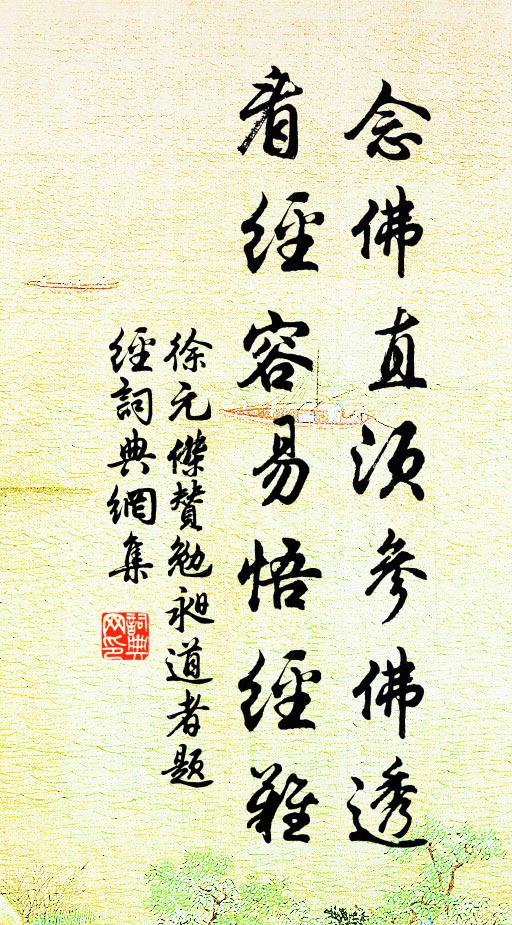 念佛直須參佛透
看經容易悟經難
徐元傑贊勉昶道者題
經詞典網集
詞典網印